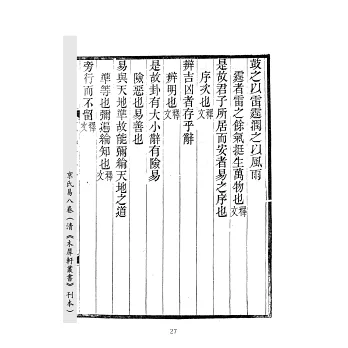 鼓之以雷霆潤之以風雨
霆者雷之餘氣挺生萬物也釋文
是故君子所居而安者易之序也
序次也釋文
辨吉凶者存乎辭
辨明也釋文
是故卦有大小辭有險易
險惡也易善也
易與天地準故能彌綸天地之道
準等也彌遍綸知也釋文
旁行而不留釋文
京氏易八卷（清《木犀軒叢書》刊本）
27